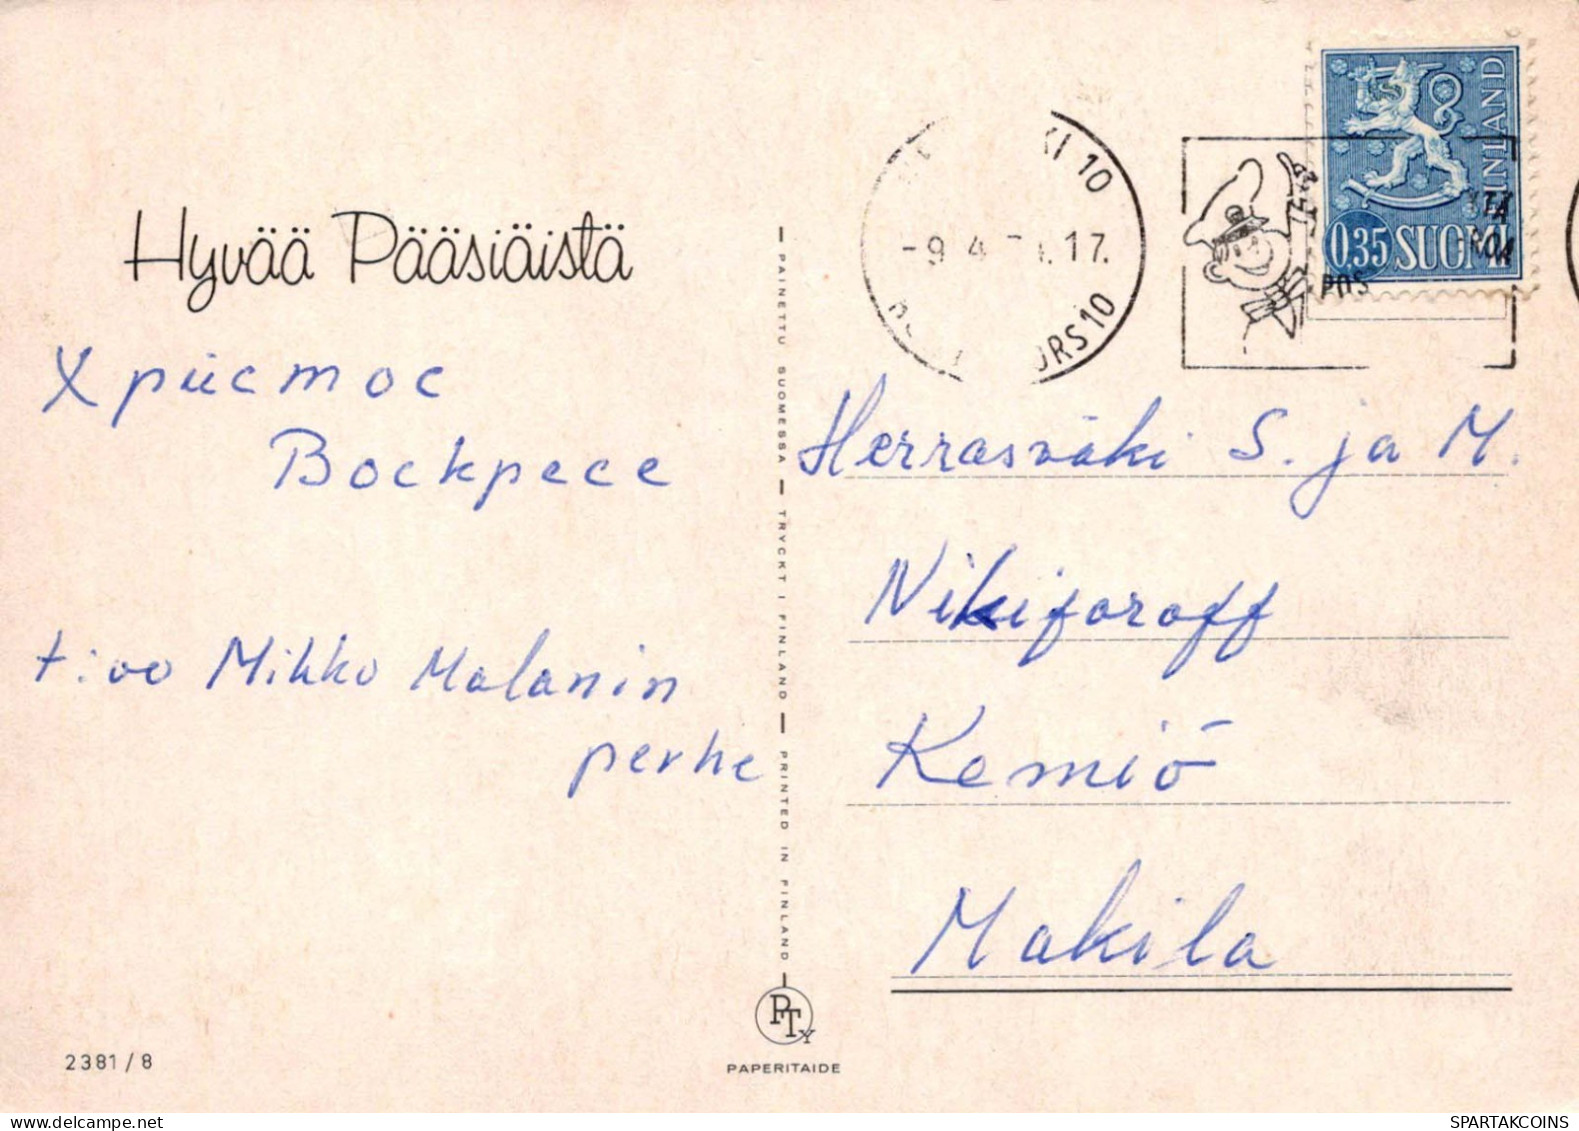 Hyvää Pääsiäistä
Христос
Воскресе
t:oo Mikko Malanin
perhe
2381/8
PAINETTU SUOMESSA — TRYCKT I FINLAND — PRINTED IN FINLAND
PTY
PAPERITAIDE
KI 10
-9.4 17.
ORS 10
POS
FINLAND
0,35 SUOMI
Herrasväki S. ja M.
Nikiforoff
Kemiö
Makila
SPARTAKCOINS.COM